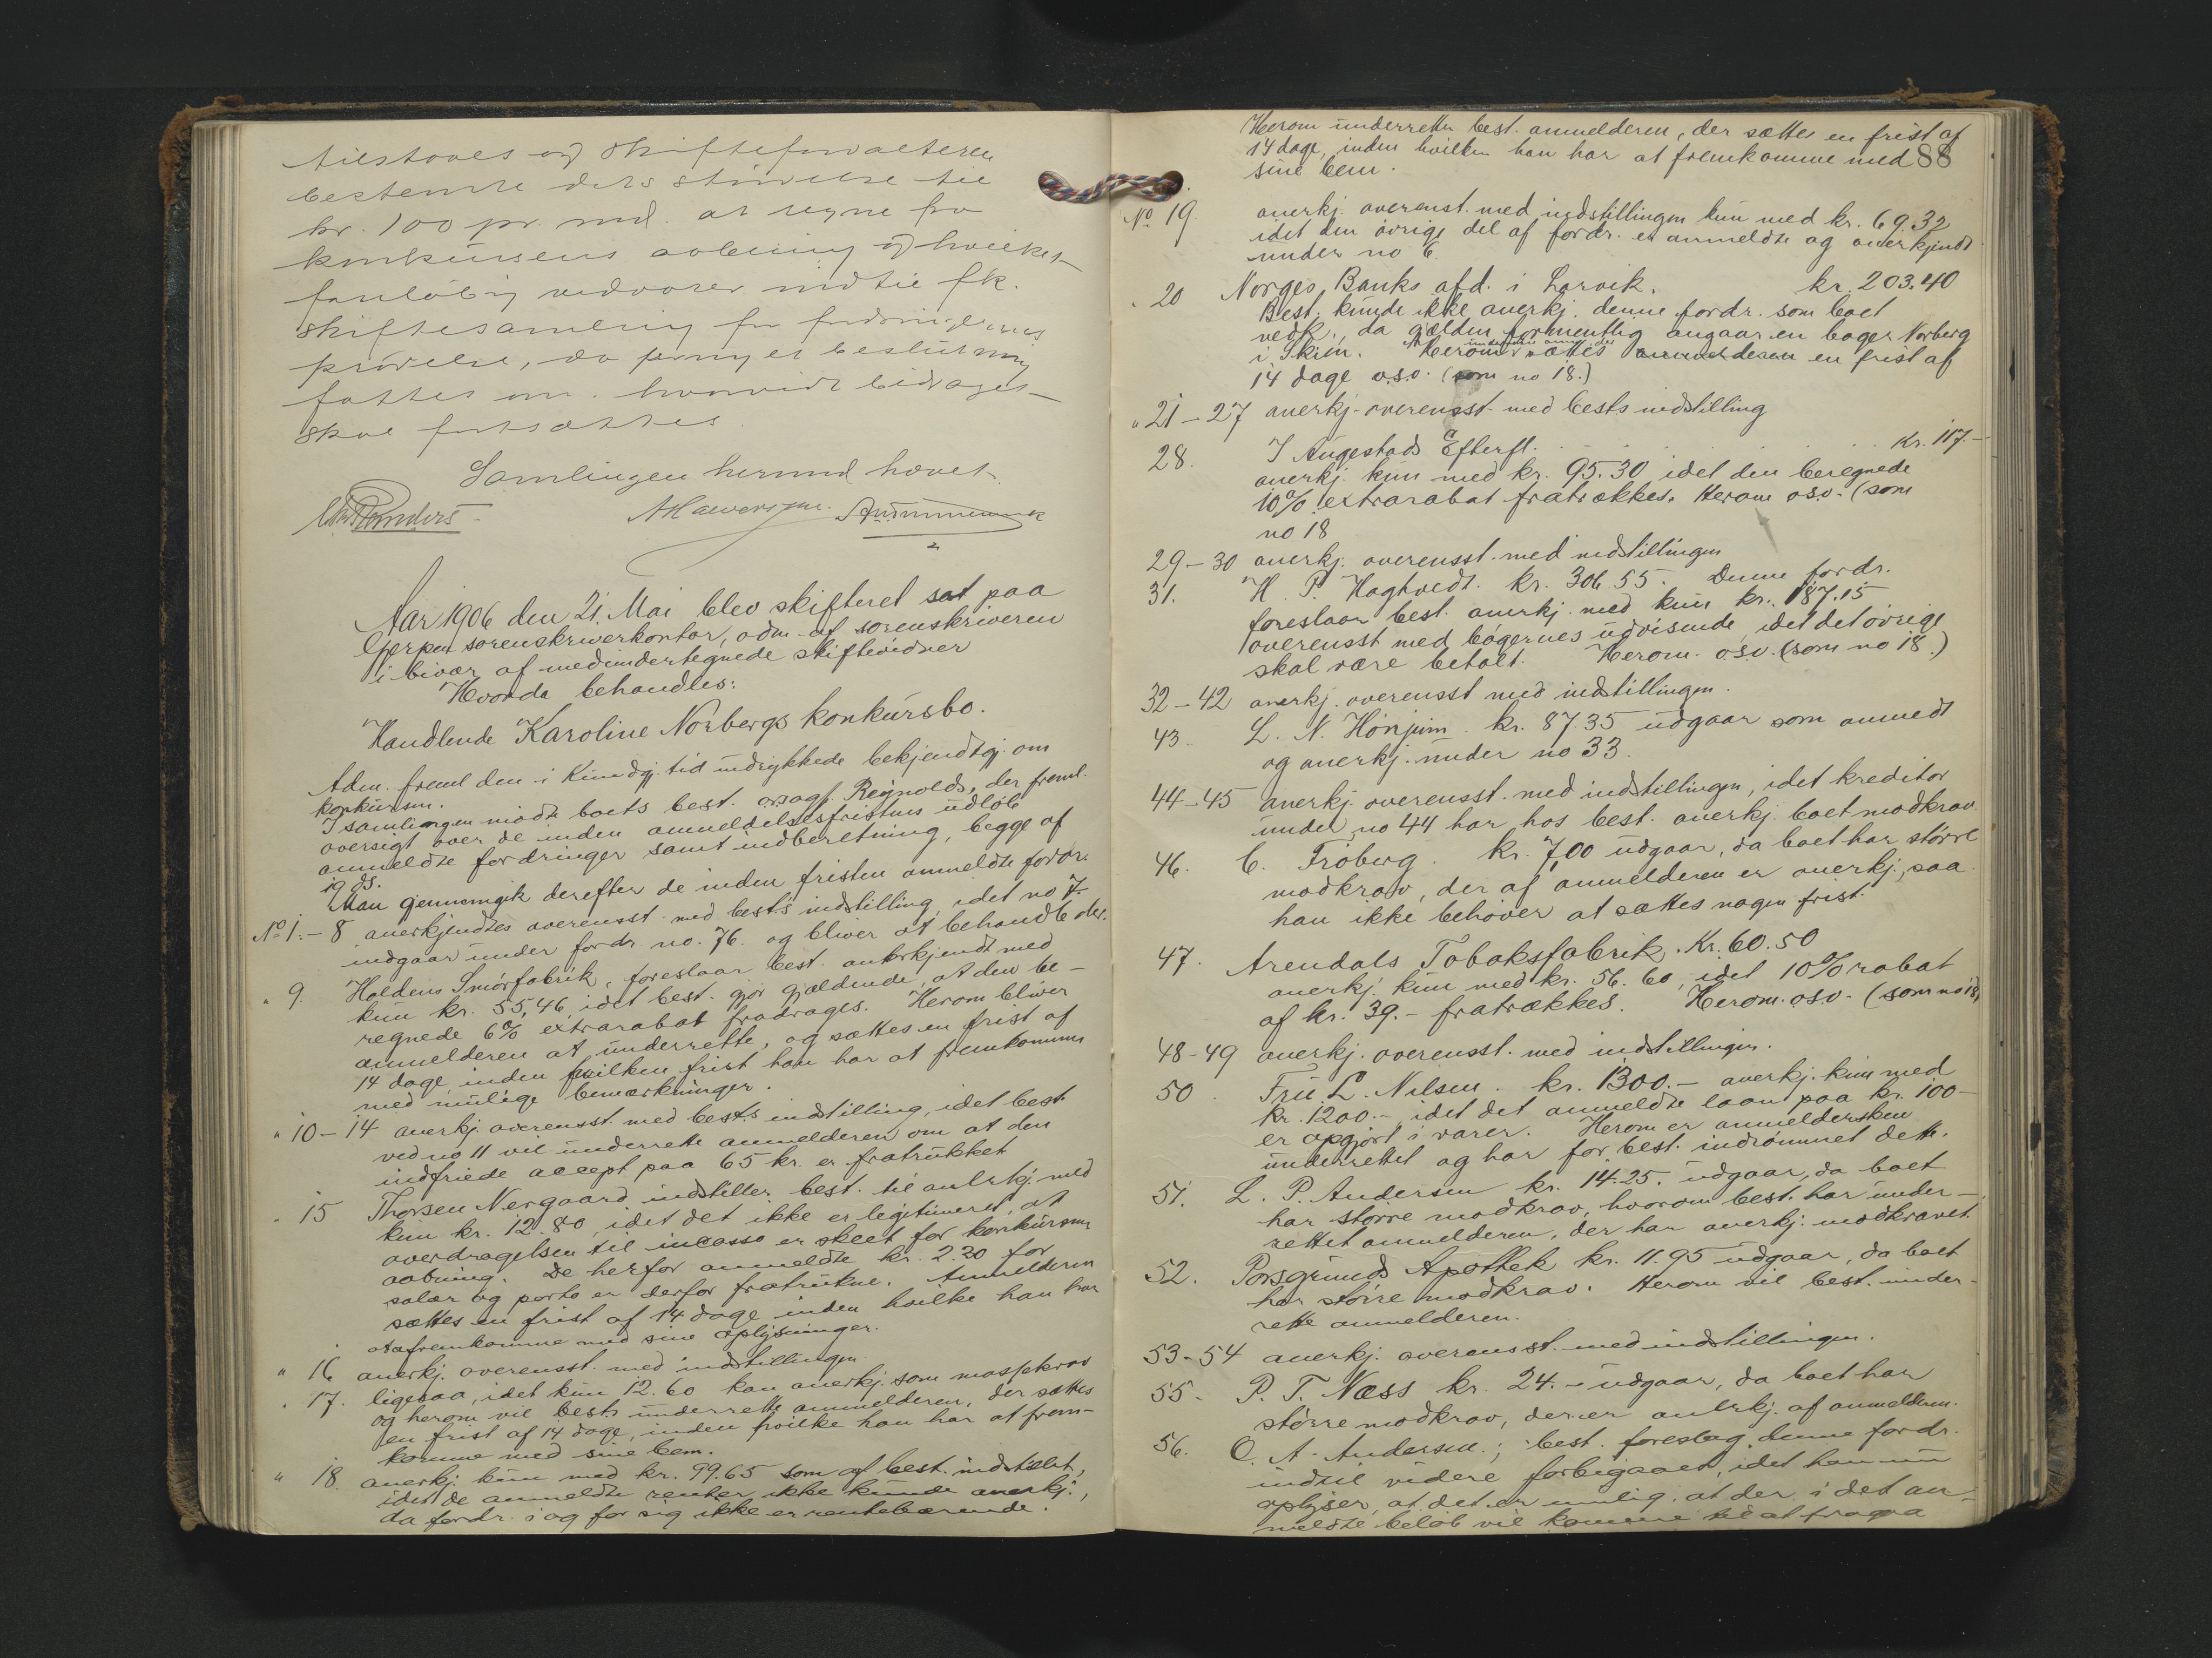 tilstaaes og Skifteforvalteren
bestemte dets størrelse til
kr. 100 pr. md. at regne fra
konkursens aabning og hvilket
foreløbig vedvarer indtil fk.
skiftesamling for fordringernes
prøvelse, da fornyet beslutning
fattes om hvorvidt bidraget
skal fortsættes.
Samlingen hermed hævet.
Aar 1906 den 21. Mai blev skifteret sat paa
Gjerpen sorenskriverkontor, adm. af sorenskriveren
i bivær af medundertegnede skiftevidner
Hvorda behandles:
Handlende Karoline Norbergs konkursbo.
Adm. freml den i Kundgj. tid indrykkede bekjendtgj. om
konkursen.
I samlingen mødte boets best. orsagf. Reynolds, der freml.
oversigt over de inden anmeldelsesfristens udløb
anmeldte fordringer samt indberetning, begge af
19 ds.
Man gjennemgik derefter de inden fristen anmeldte fordr.
No 1.-8 anerkjendtes overensst. med best's indstilling, idet no 7
indgaar under fordr no. 76. og bliver at behandle der.
" 9. Haldens Smørfabrik, foreslaar best. anerkjendt med
kun kr. 55,46, idet best. gjør gjældende, at den be-
regnede 6% extrarabat fradrages. Herom bliver
anmelderen at underrette, og sættes en frist af
14 dage, inden hvilken frist han har at fremkomme
med mulige bemærkninger.
" 10-14 anerkj. overensst. med best's indstilling, idet best
ved no 11 vil underrette anmelderen om at den
indfriede accept paa 65 kr. er fratrukket
" 15 Thorsen Nergaard indstiller best. til anerkj. med
kun kr. 12.80, idet det ikke er legitimeret, at
overdragelsen til incasso er skeet før konkursens
aabning. De herfor anmeldte kr. 2.20 for
salær og porto er derfor fratrukne. Anmelderen
sættes en frist af 14 dage inden hvilke han har
at fremkomme med sine oplysninger.
" 16 anerkj. overensst. med indstillingen
" 17. ligesaa, idet kun 12.60 kan anerkj. som massekrav
og herom vil best. underrette anmelderen, der sættes
en frist af 14 dage, inden hvilke han har at frem-
komme med sine bem.
" 18. anerkj. kun med kr. 99.65 som af best. indstillet,
idet de anmeldte renter ikke kunde anerkj.,
da fordr. i og for sig ikke er rentebærende.
Herom underrettes best. anmelderen, der sættes en frist af
14 dage, inden hvilken han har at fremkomme med 88
sine bem.
No 19. anerkj. overenst. med indstillingen kun med kr. 69.32
idet den øvrige del af fordr. er anmeldte og anerkjendt
under no 6.
" 20 Norges Banks afd. i Larvik. kr. 203.40
Best. kunde ikke anerkj. denne fordr. som boet
vedk., da gjælden formentlig angaar en bager Norberg
i Skien. Herom underrettes anm. der sættes anmelderen en frist af
14 dage o.s.v. (som no 18.)
" 21-27 anerkj. overensst. med bests indstilling
28. J Augestads Efterfl. kr. 117.-
anerkj. kun med kr. 95.30 idet den beregnede
10% extrarabat fratrækkes. Herom o.s.v. (som
no 18
29-30 anerkj. overensst. med indstillingen
31. H. P. Hagtvedt. kr. 306.55. Denne fordr.
foreslaar best. anerkj. med kun kr. 187.15
overensst med bøgernes udvisende, idet det øvrige
skal være betalt. Herom o.s.v. (som no 18.)
32-42 anerkj. overensst med indstillingen.
43. L. N. Hønjum. kr. 87.35 udgaar som anmedt
og anerkj. under no 33.
44-45 anerkj. overensst. med indstillingen, idet kreditor
under no 44 har hos best. anerkj. boet modkrav
46. C. Frøberg. kr. 7,00 udgaar, da boet har større
modkrav, der af anmelderen er anerkj., saa
han ikke behøver at sættes nogen frist.
47. Arendals Tobaksfabrik. Kr. 60.50
anerkj. kun med kr. 56.60, idet 10% rabat
af kr. 39.- fratrækkes. Herom. osv. (som no 18)
48-49 anerkj. overensst. med indstillingen.
50. Fru L. Nilsen. kr. 1300.- anerkj. kun med
kr. 1200.-, idet det anmeldte laan paa kr. 100-
er opgjort i varer. Herom er anmeldersken
underrettet og har for best. indrømmet dette.
51. L. P. Andersen kr. 14.25. udgaar, da boet
har større modkrav, hvorom best. har under-
rettet anmelderen, der har anerkj. modkravet.
52. Porsgrunds Apothek kr. 11.95 udgaar, da boet
har større modkrav. Herom vil best. under-
rette anmelderen.
53-54 anerkj. overensst. med indstillingen.
55. P. T. Næss kr. 24.- udgaar, da boet har
større modkrav, der er anerkj. af anmelderen.
56. O. A. Andersen.; best. foreslog denne fordr.
indtil videre forbigaaet, idet han nu
oplyser, at det er mulig, at der i det an-
meldte beløb vil komme til at fragaa